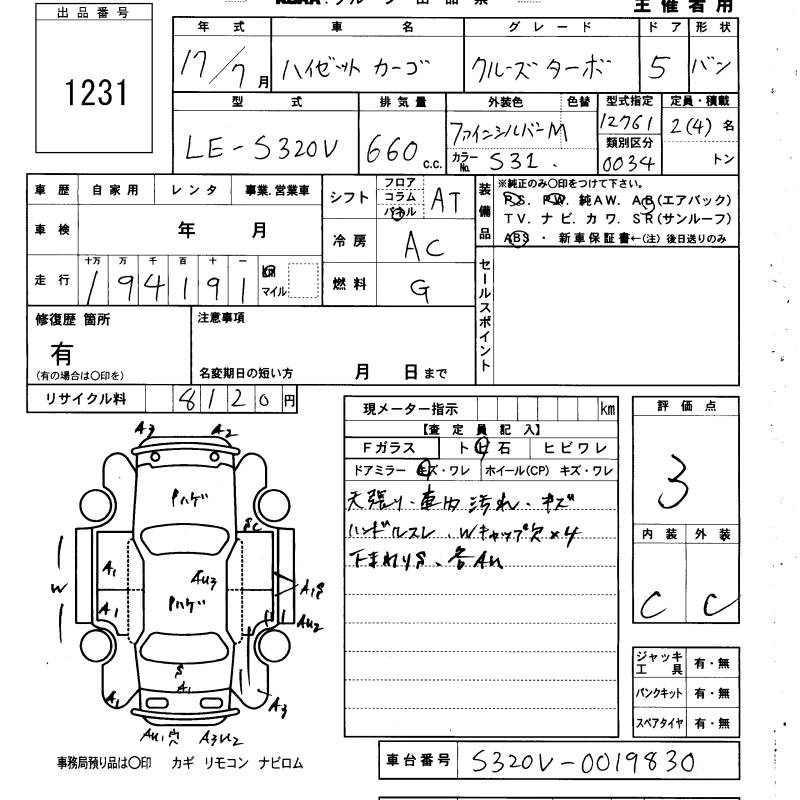 主催者用
出品番号
1231
年式 車名 グレード ドア 形状
17/7月 ハイゼット カーゴ クルーズターボ 5 バン
型式 排気量 外装色 色替 型式指定 定員・積載
LE-S320V 660 c.c. ファインシルバーM 12761 2(4)名
カラーNo. S31. 類別区分 0034 トン
車歴 自家用 レンタ 事業.営業車
シフト フロア コラム パネル AT
装備品 ※純正のみ〇印をつけて下さい。
P.S. PW. 純AW. AB(エアバック)
TV. ナビ. カワ. SR(サンルーフ)
ABS ・ 新車保証書←(注)後日送りのみ
車検 年 月
冷房 AC
走行 十万 万 千 百 十 一
194191 km マイル
燃料 G
セールスポイント
修復歴 箇所
有
(有の場合は〇印を)
注意事項
名変期日の短い方 月 日まで
リサイクル料 8120 円
現メーター指示 km
【査定員記入】
Fガラス ト ビ 石 ヒビワレ
ドアミラー キズ・ワレ ホイール(CP) キズ・ワレ
天張り・車内汚れ・キズ
ハンドルスレ、Wキャップ欠×4
下まわりS、各AU
評価点
3
内装 外装
C C
A3 A2
ハゲ
SC
A1 AU3 A1S
W
A1 ハゲ AU2
S
A1 A1 A3
AU1穴 A3U2
ジャッキ工具 有・無
パンクキット 有・無
スペアタイヤ 有・無
事務局預り品は〇印 カギ リモコン ナビロム
車台番号 S320V-0019830